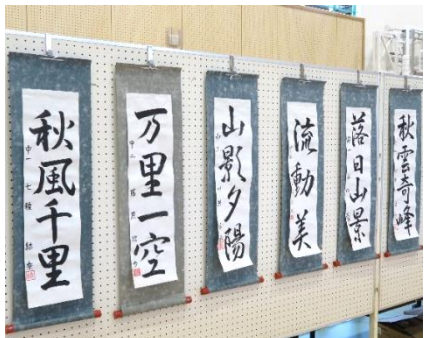 秋風千里
万里一空
山影夕陽
流動美
落日山景
秋雲奇峰